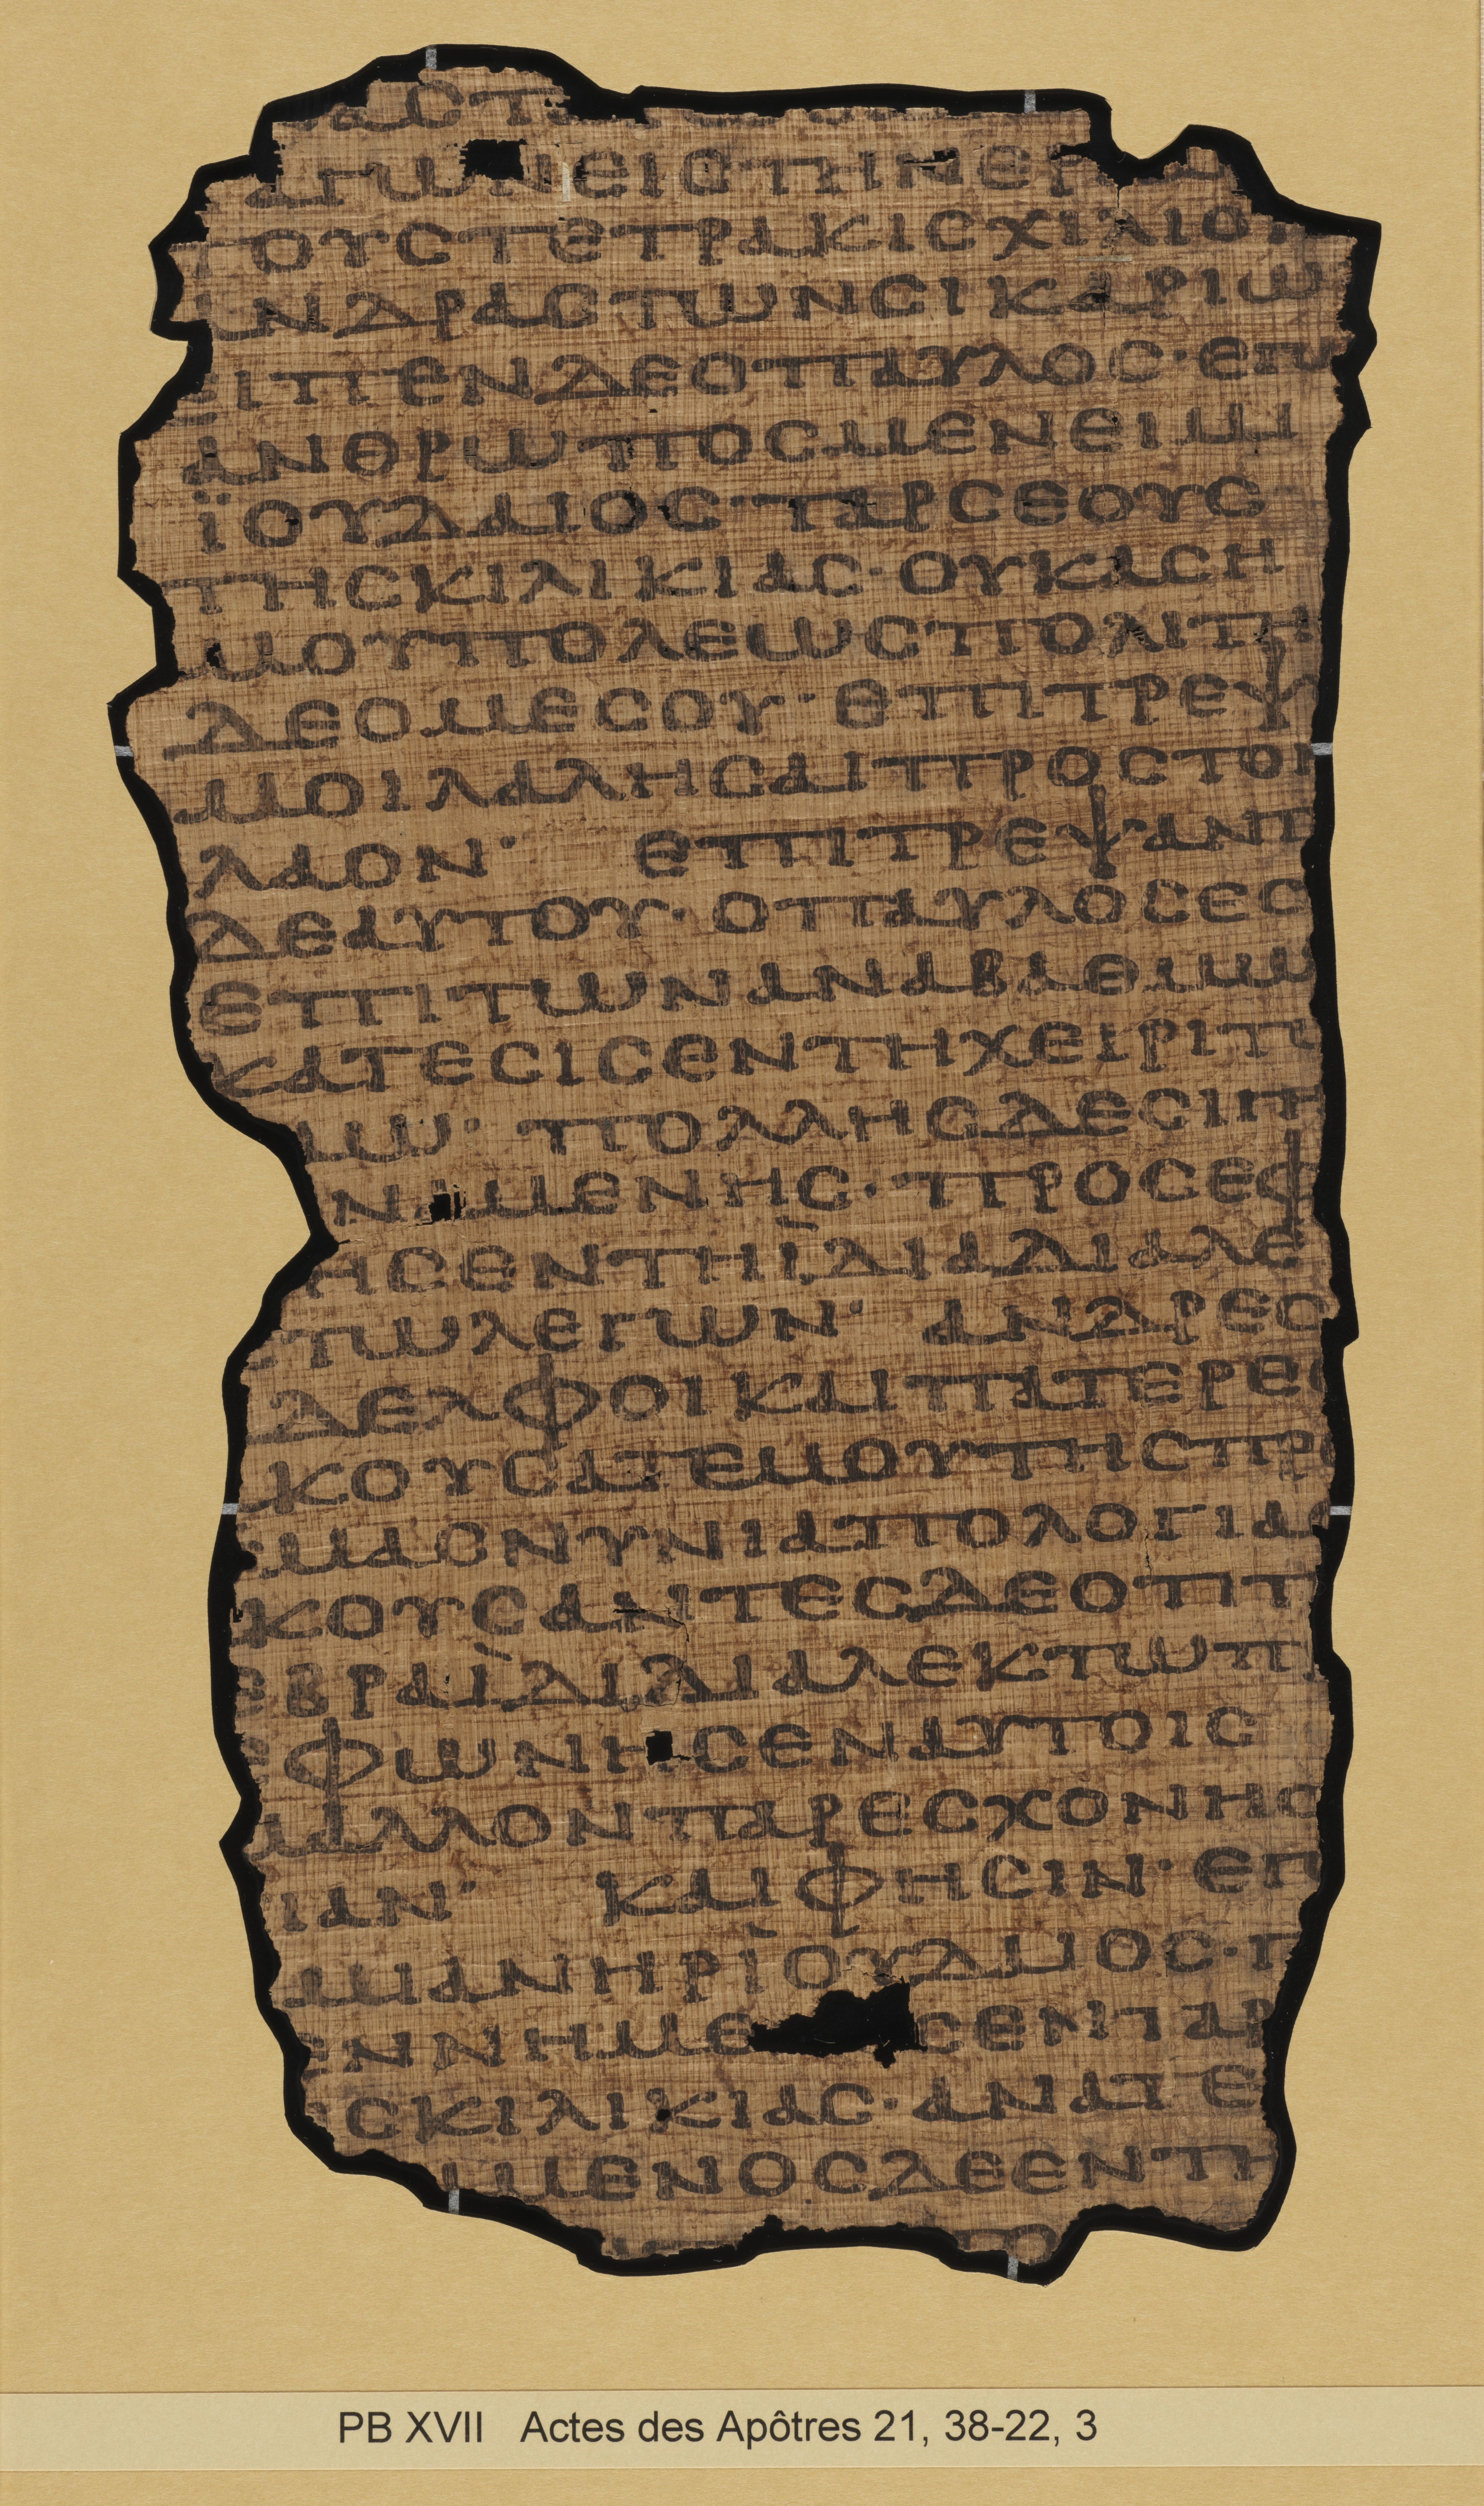 αςτ
αγωνειςτηνερ
τουςτετρακιςχιλιο
ανδραςτωνςικαριω
ειπενδεοπαυλος·επ
ανθρωποςμενειμι
ϊουδαιος·ταρςεους
τηςκιλικιας·ουκαςη
μουπολεωςπολιτη
δεομεςου·επιτρεψ
μοιλαληςαιπροςτον
λαον· επιτρεψαντ
δεαυτου·οπαυλοςες
επιτωναναβαθμω
κατεςιςεντηχειριτω
αω· πολληςδεςιγη
ναμενης·προςεφ
ηςεντηϊδιαδιαλε
τωλεγων· ανδρες
δελφοικαιπατερες
κουςατεμουτηςπρο
υμαςνυνιαπολογιας
κουςαντεςδεοτιτ
εβραϊδιδιαλεκτωπρ
εφωνηςεναυτοις
μαλλονπαρεςχονης
χιαν· καιφηςιν·επ
αμιανηρϊουδαιος·γ
εννημε ςενταρ
ςκιλικιας·ανατε
μενοςδεεντη
πο
PB XVII Actes des Apôtres 21, 38-22, 3